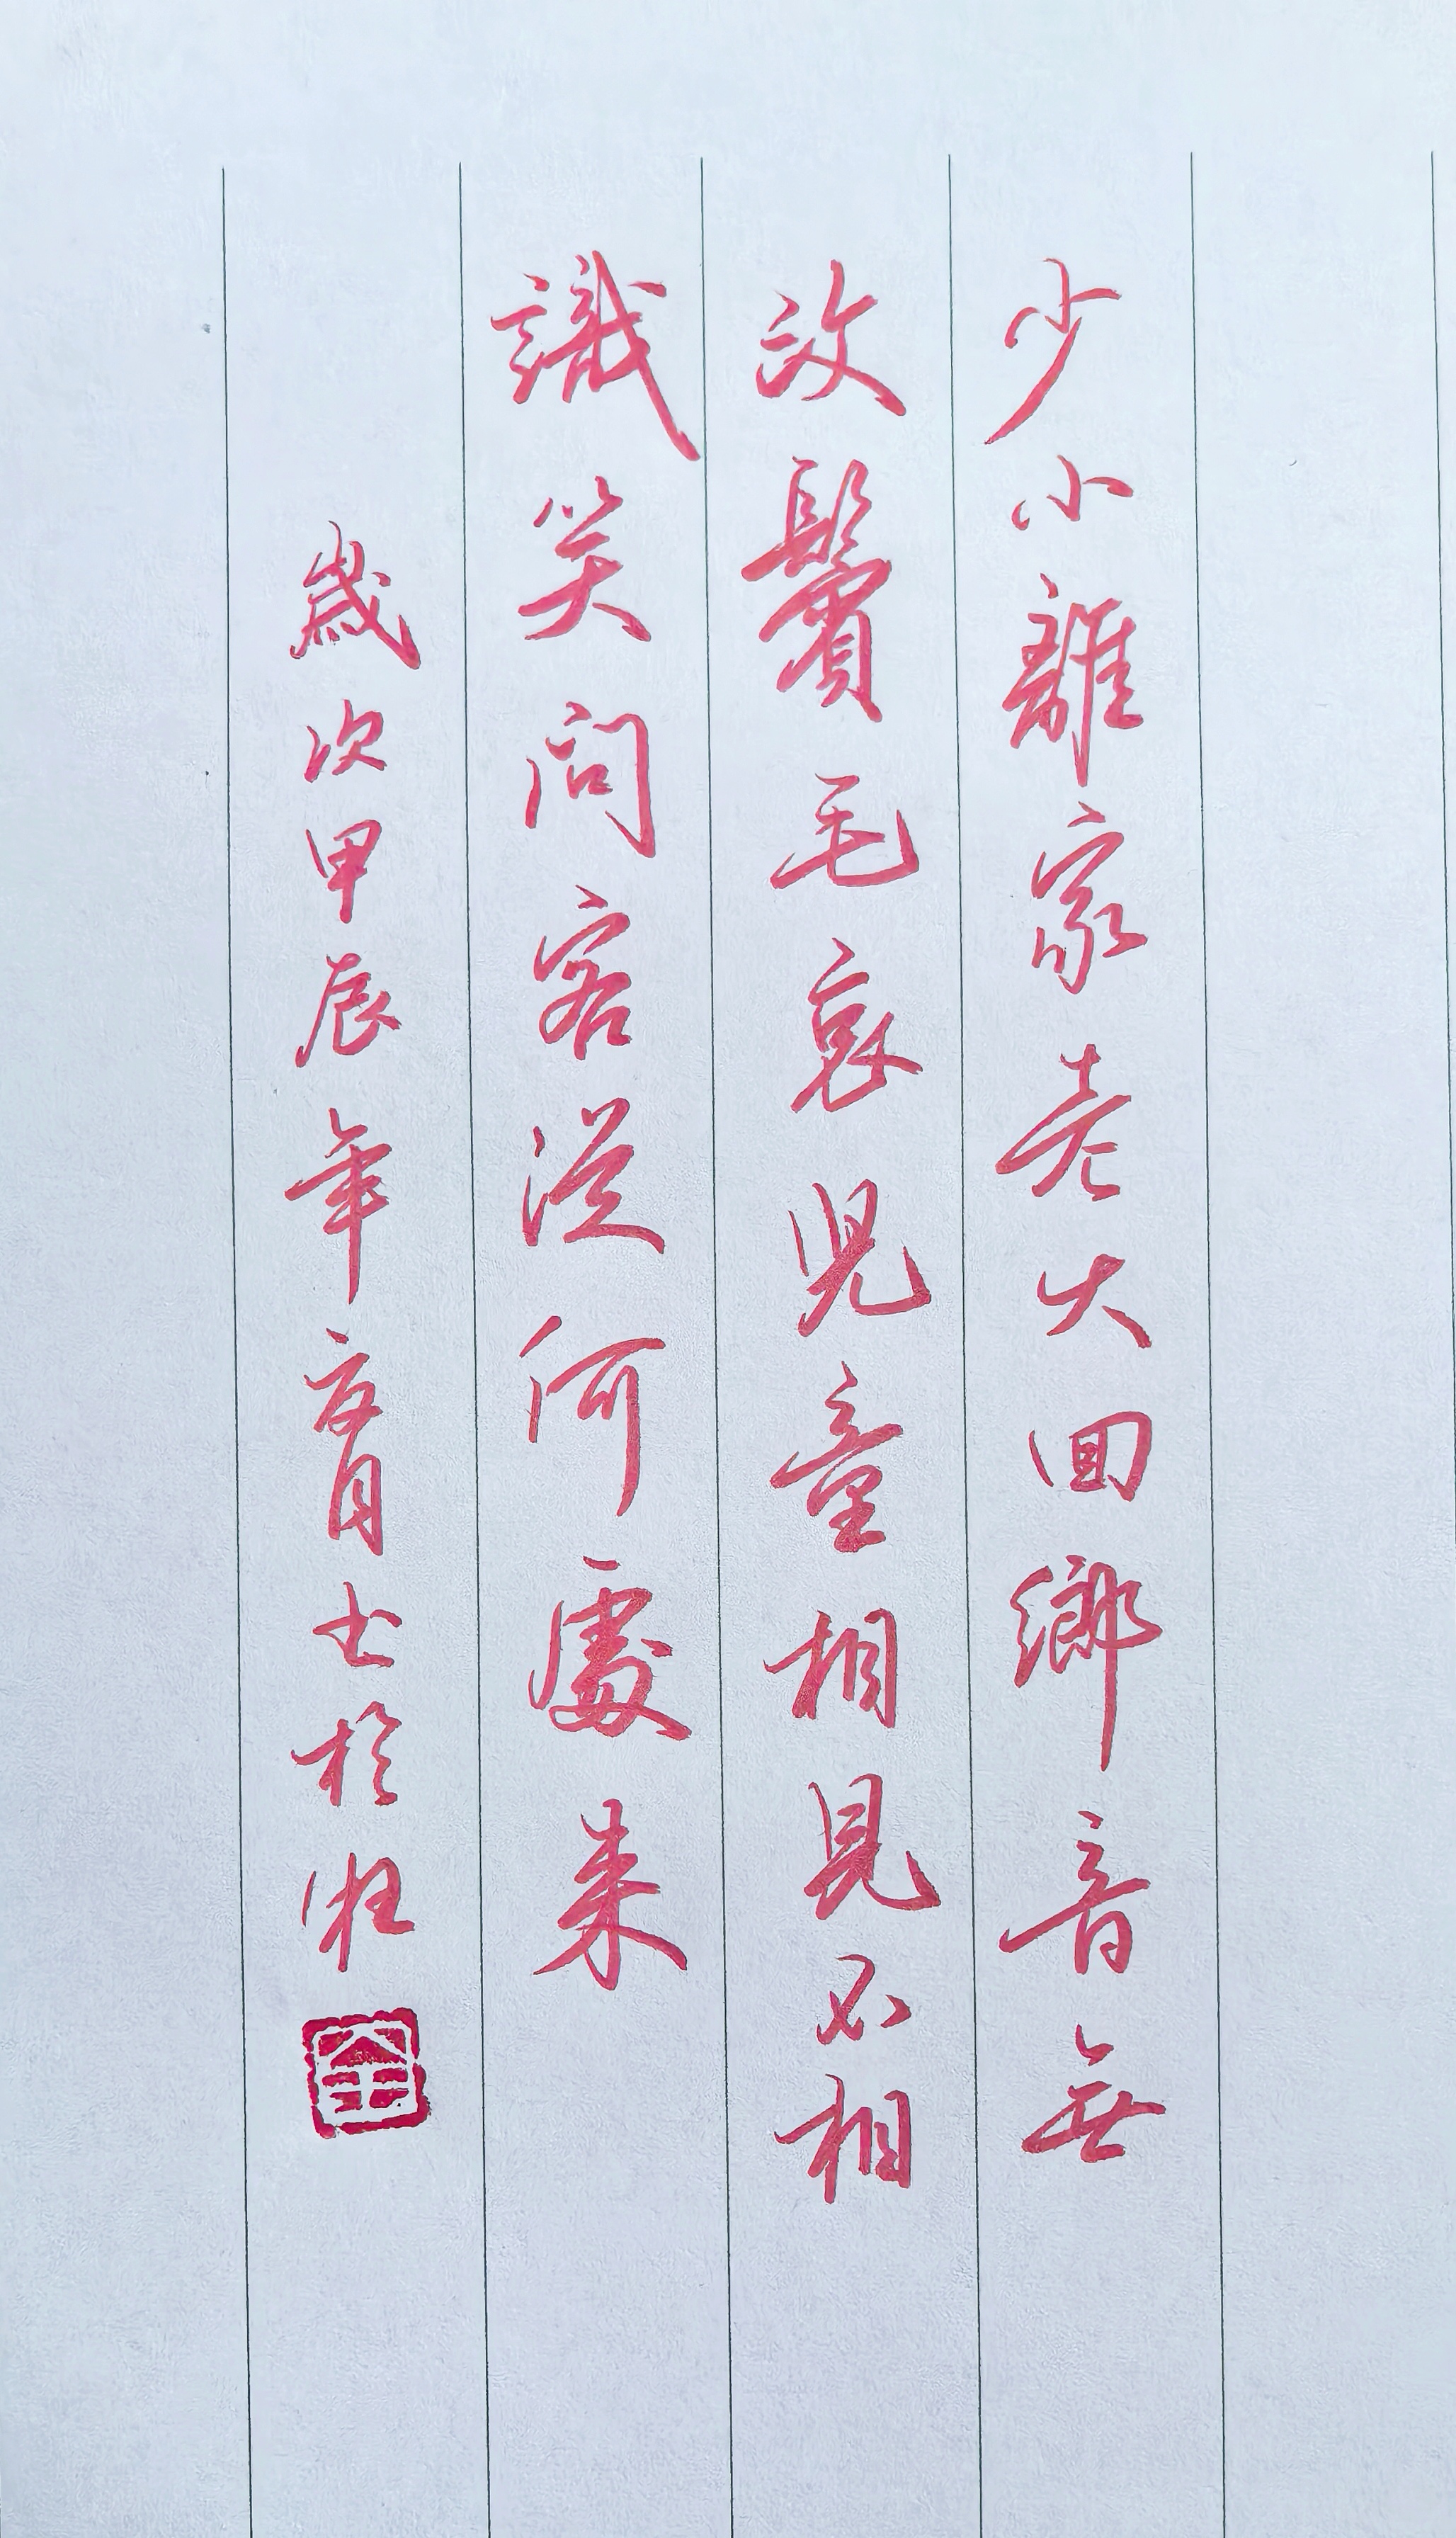 少小離家老大回鄉音無
改鬢毛衰兒童相見不相
識笑問客從何處来
歲次甲辰年夏月士於淮
全